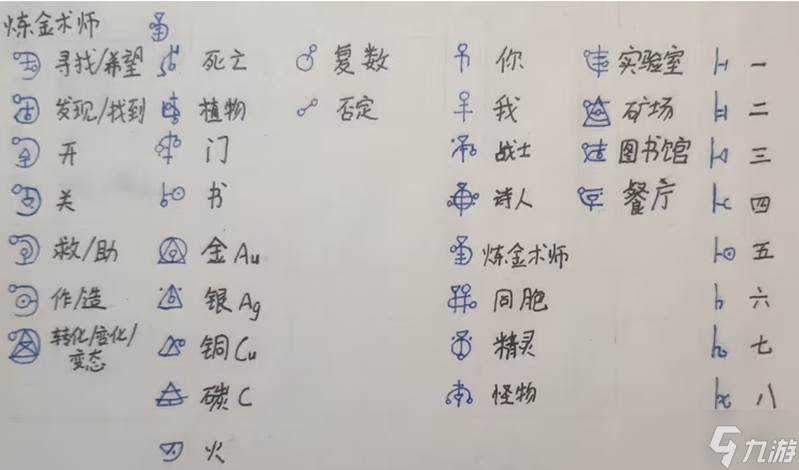 炼金术师
寻找/希望 死亡 复数 你 实验室 一
发现/找到 植物 否定 我 矿场 二
开 门 战士 图书馆 三
关 书 诗人 餐厅 四
救/助 金Au 炼金术师 五
作/造 银Ag 同胞 六
转化/变化/变态 铜Cu 精灵 七
碳C 怪物 八
火
九游